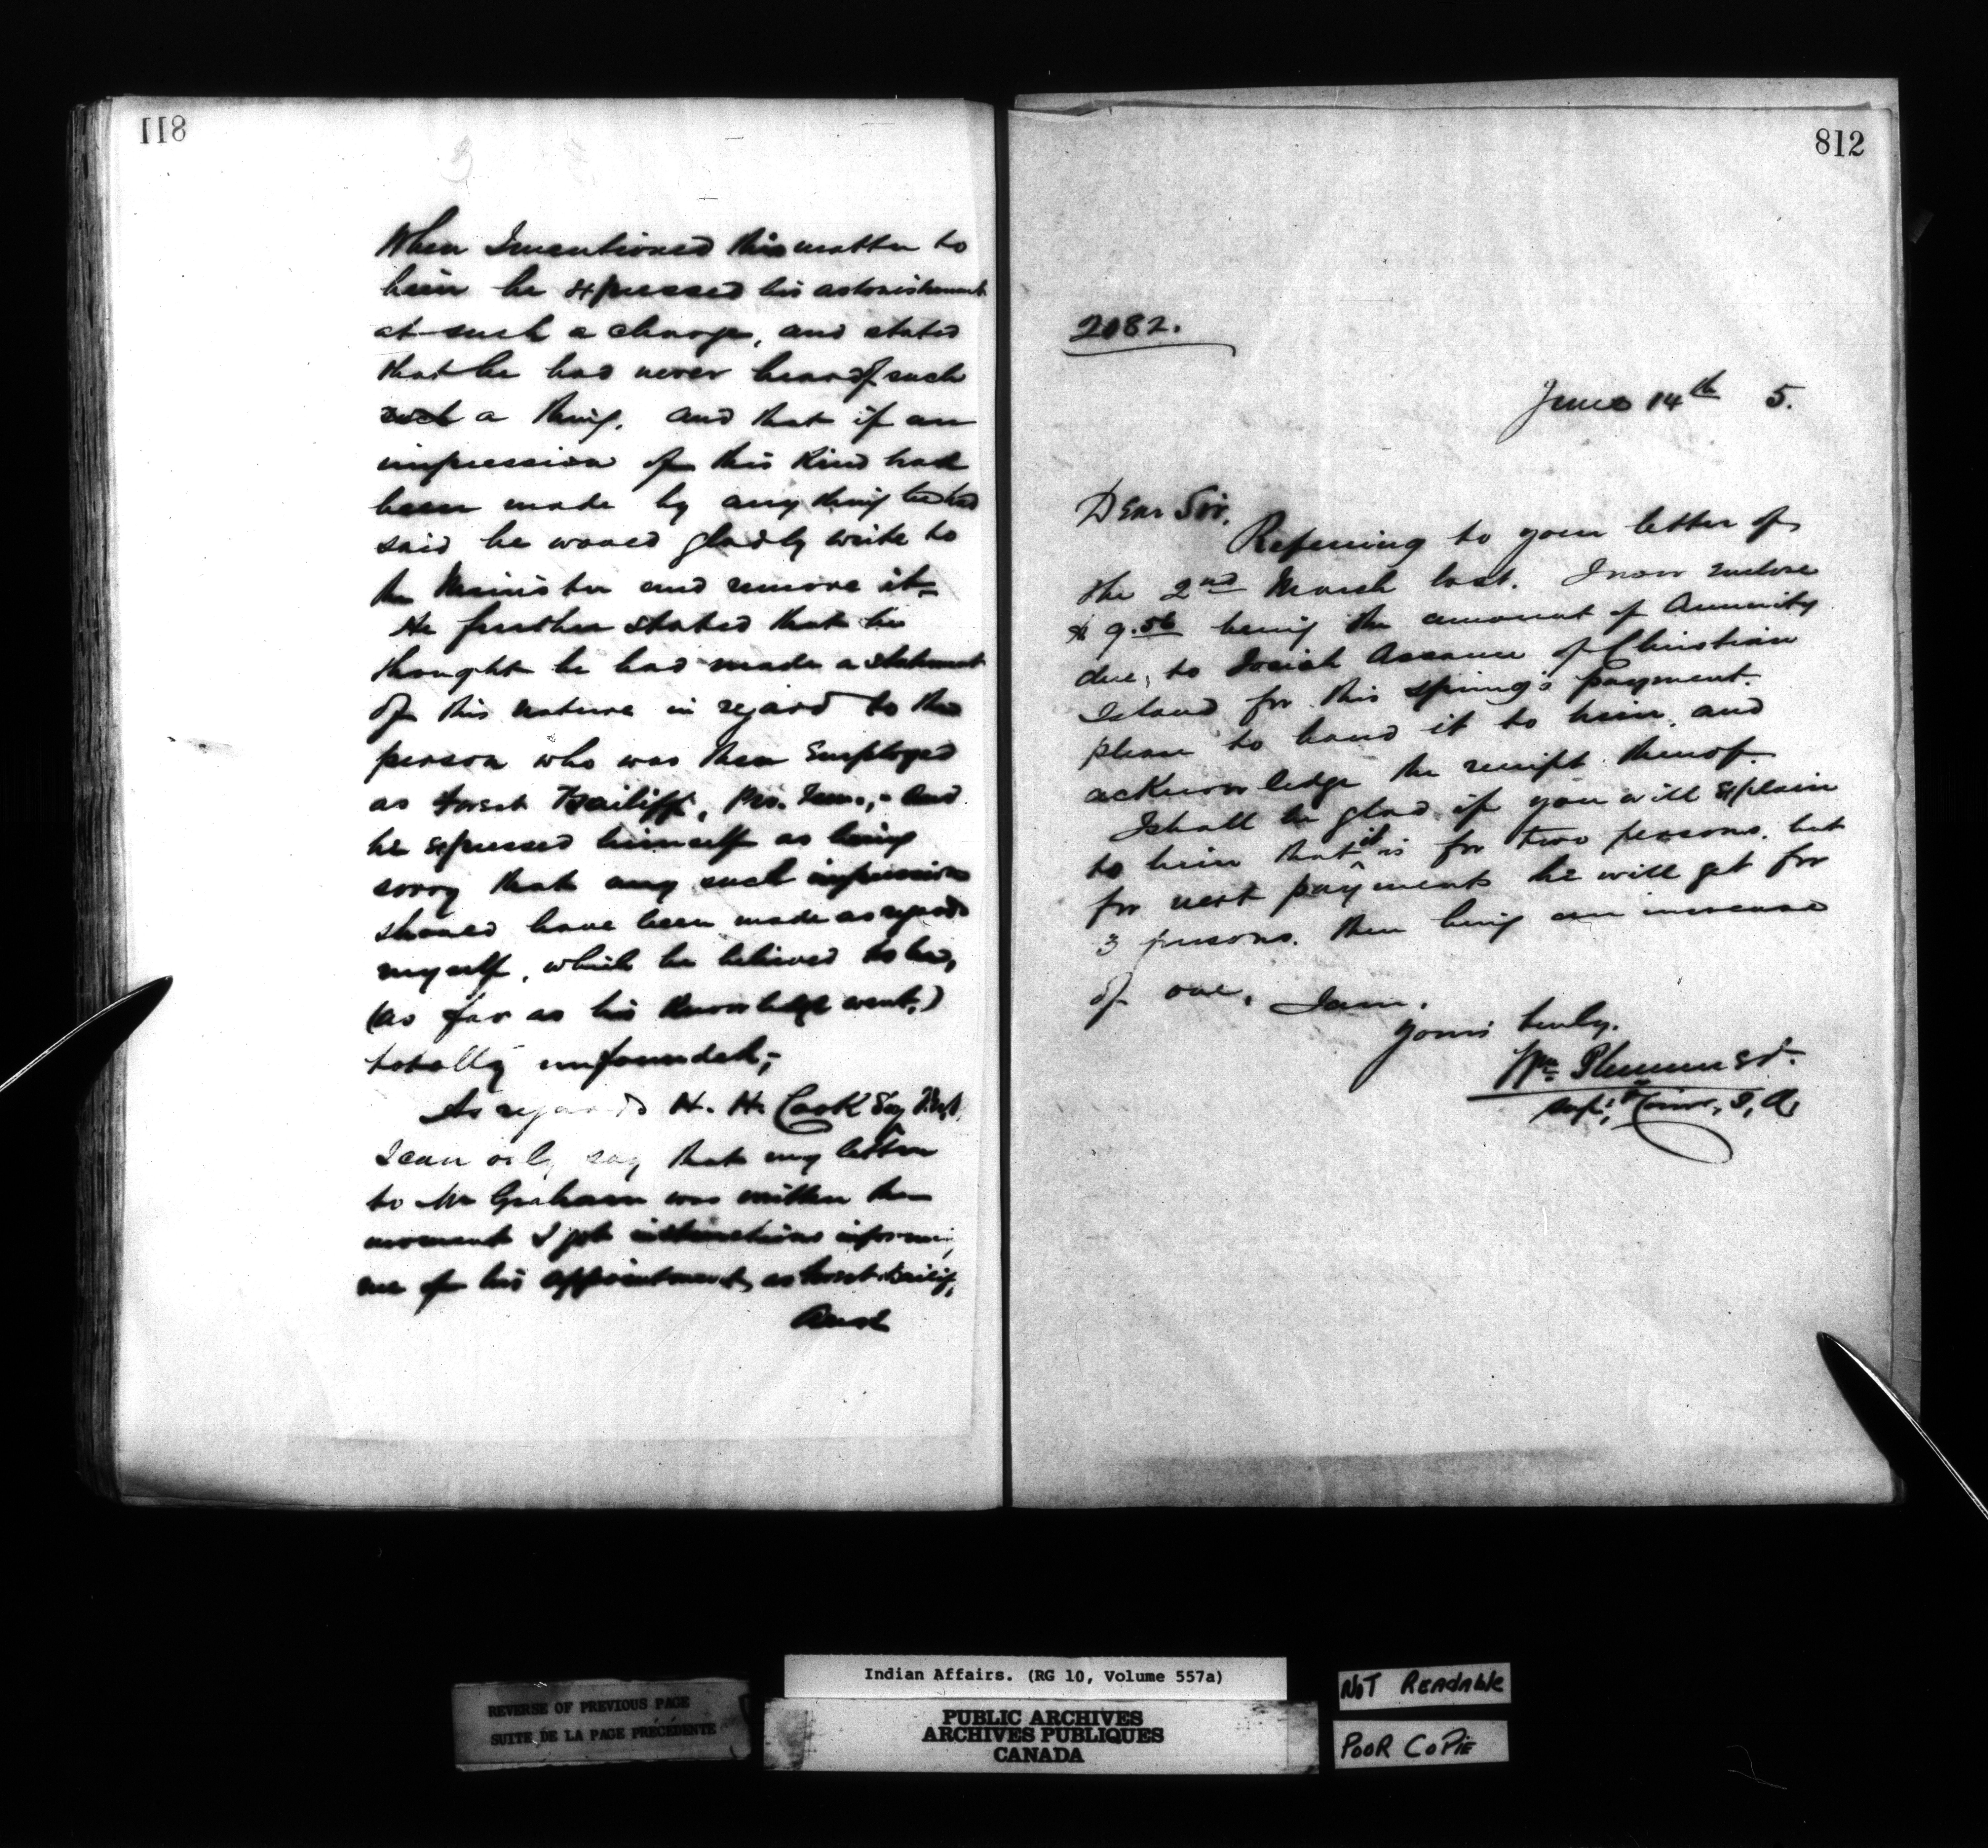 811
When I mentioned this matter to
him he expressed his astonishment
at such a charge, and stated
that he had never heard of such
such a thing. and that if an
impression of this kind had
been made by any thing he had
said he would gladly write to
the Minister and remove it.
He further stated that he
thought he had made a statement
of this nature in regard to the
person who was then Employed
as Forest Bailiff, Pro. Tem., - and
he expressed himself as being
sorry that any such impression
should have been made as regards
myself, which he believed to be,
(as far as his knowledge went,)
totally unfounded;
As regards H. H. Cook Esq M.P.
I can only say that my letter
to Mr Graham was written the
moment I got instructions informing
me of his appointment, as Forest Bailiff,
And
812
2082.
June 14th 5.
Dear Sir,
Referring to your letter of
the 2nd March last. I now enclose
$9.56 being the amount of Annuity
due, to Josiah Assance of Christian
Island for this spring's payment.
please to hand it to him, and
acknowledge the receipt thereof.
I shall be glad if you will explain
to him that it is for two persons. but
for next payments he will get for
3 persons. there being an increase
of one, I am,
Yours truly,
Wm Plummer
Supt. & Comr, I, A,
Indian Affairs. (RG 10, Volume 557a)
REVERSE OF PREVIOUS PAGE
SUITE DE LA PAGE PRÉCÉDENTE
PUBLIC ARCHIVES
ARCHIVES PUBLIQUES
CANADA
NOT READABLE
POOR COPIE